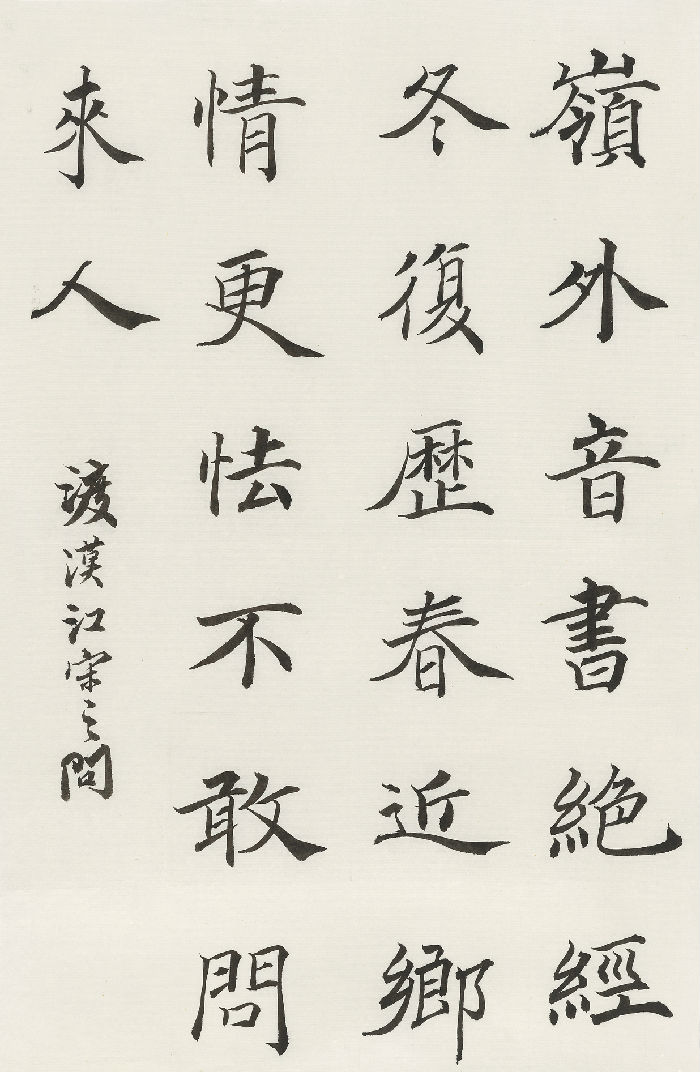 嶺外音書絶經
冬復歷春近鄉
情更怯不敢問
來人
渡漢江宋之問